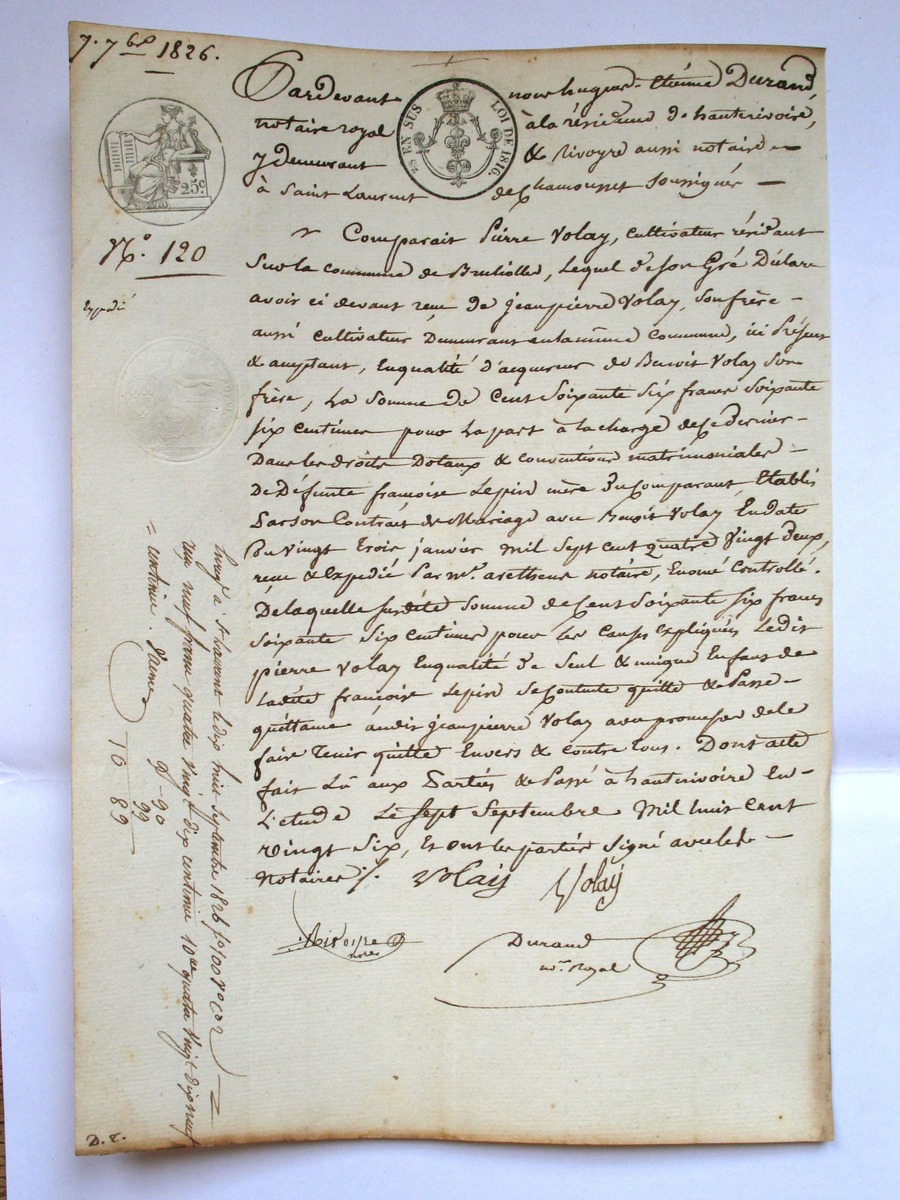 7. 7bre 1826.
Pardevant nous hugues-Etiénne Durand,
notaire royal à la résidence de hauterivoire,
y demeurant & Rivoyre aussi notaire
à Saint Laurent de Chamousset soussignés —
EN SUS
LOI DE 1816.
25 c.
N.° 120
Expédié
Comparait Pierre Volay, cultivateur résidant
Sur la commune de Brulliolles, Lequel de son Gré Déclare
avoir ci devant recu de jeanpierre Volay, son frère -
aussi cultivateur Demeurant en la même Commune, ici Présent
& acceptant, En qualité d'acquereur de Benoit Volay Son
frère, La Somme de Cent Soixante Six francs Soixante
Six Centimes pour La part à la charge de Ce dernier -
Dans les droits Dotaux & conventions matrimoniales -
De Défunte françoise Lepin mère du Comparant, Etablis
Par son Contrait de Mariage avec Benoit Volay, En date
Du Vingt Trois janvier Mil Sept Cent quatre Vingt Deux,
recu & Expédié Par me. notaire, Controllé.
De laquelle Susdite Somme de Cent Soixante Six francs
Soixante Six Centimes pour les Causes Expliquées Ledit
pierre Volay En qualité de Seul & unique Enfant de
Ladite françoise Lepin Se Contente quitte & Passe
quittance audit jeanpierre Volay avec promesse de le
faire Tenir quitte Envers & Contre tous. Dont acte
fait Lû aux Parties & Passé à hauterivoire En
L'etude Le Sept Septembre Mil huit Cent
Vingt Six, Et ont les parties Signé avec les
Notaires /. Volaÿ Volaÿ
Rivoyre
nore
Durand
nre. Royal
St Laurent le dix huit Septembre 1826
reçu neuf francs quatre vingt dix centimes 10me quatre vingt dix neuf
= centimes.
9-90
99
10 89
D. E.